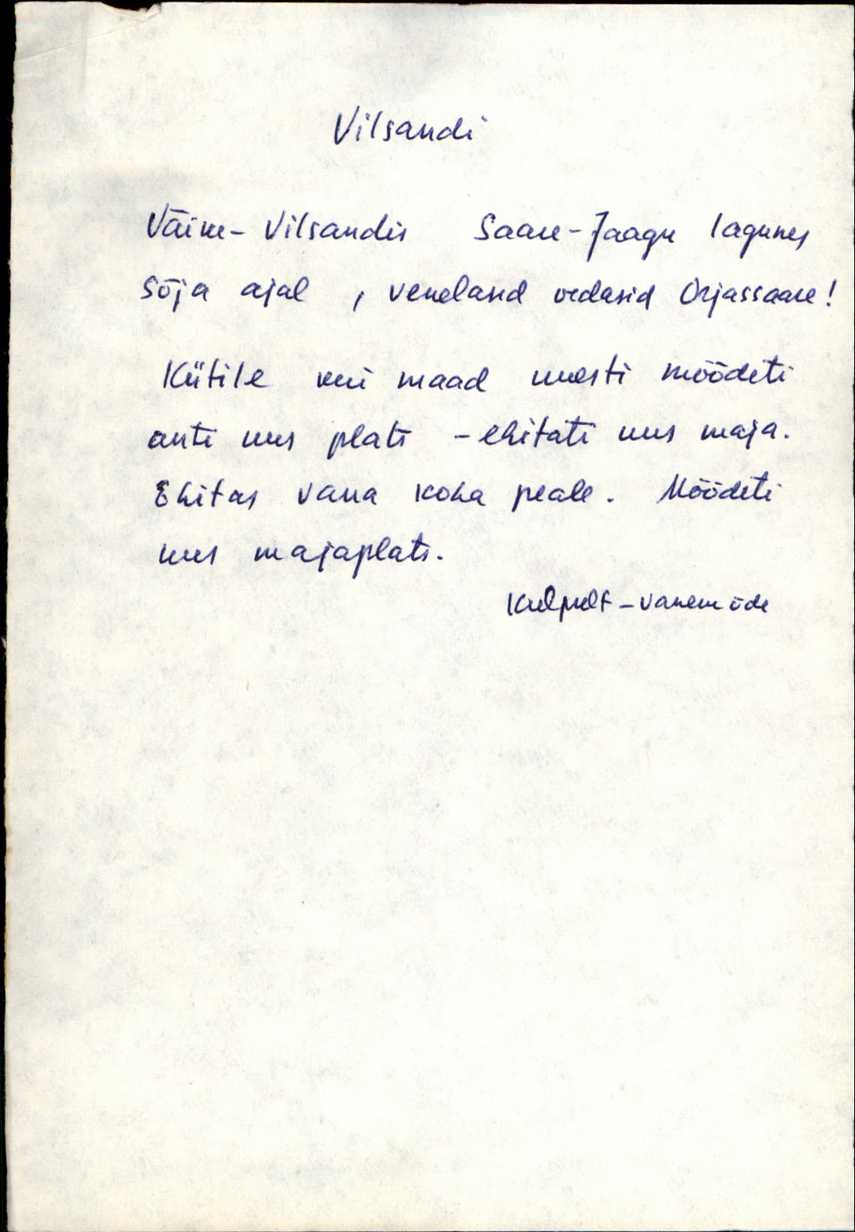 Vilsandi
Väike-Vilsandis Saare-Jaagu lagunes
sõja ajal, venelased vedasid Orjassaare!
Kütile kui maad uuesti mõõdeti
anti uus plats - ehitati uus maja.
Ehitas vana koha peale. Mõõdeti
uus majaplats.
vanem õde